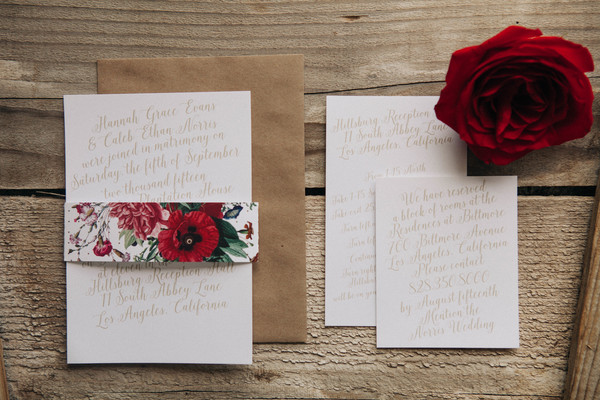 Hannah Grace Evans
& Caleb Ethan Norris
were joined in matrimony on
Saturday, the fifth of September
two thousand fifteen
Plantation House
at eleven
Hillsburg Reception Hall
11 South Abbey Lane
Los Angeles, California
Hillsburg Reception
11 South Abbey Lane
Los Angeles, California
Take I-75 North
We have reserved
a block of rooms at the
Residences at Biltmore
700 Biltmore Avenue
Los Angeles, California
Please contact
828.350.8000
by August fifteenth
Mention the
Norris Wedding